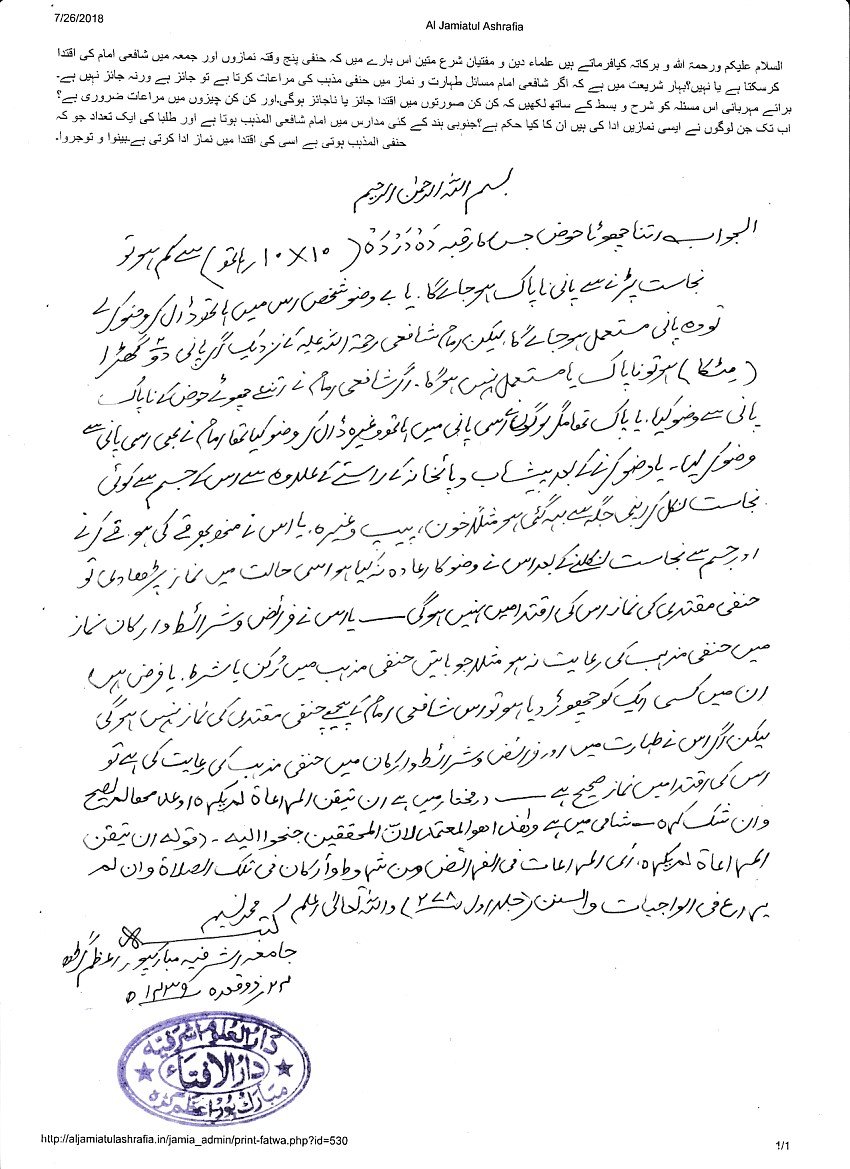 7/26/2018
Al Jamiatul Ashrafia
السلام علیکم ورحمۃ اللہ و برکاتہ کیافرماتے ہیں علماء دین و مفتیان شرع متین اس بارے میں کہ حنفی پنج وقتہ نمازوں اور جمعہ میں شافعی امام کی اقتدا
کرسکتا ہے یا نہیں؟بہار شریعت میں ہے کہ اگر شافعی امام مسائل طہارت و نماز میں حنفی مذہب کی مراعات کرتا ہے تو جائز ہے ورنہ جائز نہیں ہے۔
برائے مہربانی اس مسئلہ کو شرح و بسط کے ساتھ لکھیں کہ کن کن صورتوں میں اقتدا جائز یا ناجائز ہوگی۔اور کن کن چیزوں میں مراعات ضروری ہے؟
اب تک جن لوگوں نے ایسی نمازیں ادا کی ہیں ان کا کیا حکم ہے؟جنوبی ہند کے کئی مدارس میں امام شافعی المذہب ہوتا ہے اور طلبا کی ایک تعداد جو کہ
حنفی المذہب ہوتی ہے اسی کی اقتدا میں نماز ادا کرتی ہے۔بینوا و توجروا۔
بسم اللہ الرحمٰن الرحیم
الجواب اتنا چھوٹا حوض جس کا رقبہ دَہ دَر دَہ (۱۰×۱۰ ہاتھ) سے کم ہو تو
نجاست پڑنے سے پانی ناپاک ہوجائے گا۔ یا بے وضو شخص اس میں ہاتھ ڈال کر وضو کرلے
تو وہ پانی مستعمل ہوجائے گا، لیکن امام شافعی رحمۃ اللہ علیہ کے نزدیک اگر پانی دو گھڑا
(مٹکا) ہو تو ناپاک یا مستعمل نہیں ہوگا۔ اگر شافعی امام نے اتنے چھوٹے حوض کے ناپاک
پانی سے وضو کیا، یا پاک تھا مگر لوگوں نے اسی پانی میں ہاتھ وغیرہ ڈال کر وضو کیا تھا امام نے بھی اسی پانی سے
وضو کرلیا۔ یا وضو کرنے کے بعد پیشاب و پائخانہ کے راستے کے علاوہ سے اس کے جسم سے کوئی
نجاست نکل کر اپنی جگہ سے بہہ گئی ہو مثلاً خون، پیپ وغیرہ، یا اس نے منھ بھر قے کی ہو قے کرنے
اور جسم سے نجاست نکلنے کے بعد اس نے وضو کا اعادہ نہ کیا ہو اسی حالت میں نماز پڑھادی تو
حنفی مقتدی کی نماز اس کی اقتدا میں نہیں ہوگی — یا اس نے فرائض و شرائط و ارکان نماز
میں حنفی مذہب کی رعایت نہ ہو مثلاً جو باتیں حنفی مذہب میں رُکن یا شرط، یا فرض ہیں
ان میں کسی ایک کو چھوڑ دیا ہو تو اس شافعی امام کے پیچھے حنفی مقتدی کی نماز نہیں ہوگی
لیکن اگر اس نے طہارت میں اور فرائض و شرائط و ارکان میں حنفی مذہب کی رعایت کی ہے تو
اس کی اقتدا میں نماز صحیح ہے — درمختار میں ہے ان تیقن المراعاۃ لم یکرہ او عدمہا لم یصح
وان شک کرہ — شامی میں ہے وھذا ھو المعتمد لان المحققین جنحوا الیہ۔ (قولہ ان تیقن
المراعاۃ لم یکرہ، أی المراعات فی الفرائض من شروط وأرکان فی تلک الصلاۃ وان لم
یراع فی الواجبات والسنن (جلد اول ص۲۷۸) واللہ تعالیٰ اعلم محمد نسیم
کتبہ
جامعہ اشرفیہ مبارکپور اعظم گڑھ
۲۲ ذوقعدہ ۱۴۳۹ھ
دارالعلوم اشرفیہ
دارالافتاء
مبارک پور اعظم گڑھ
http://aljamiatulashrafia.in/jamia_admin/print-fatwa.php?id=530
1/1